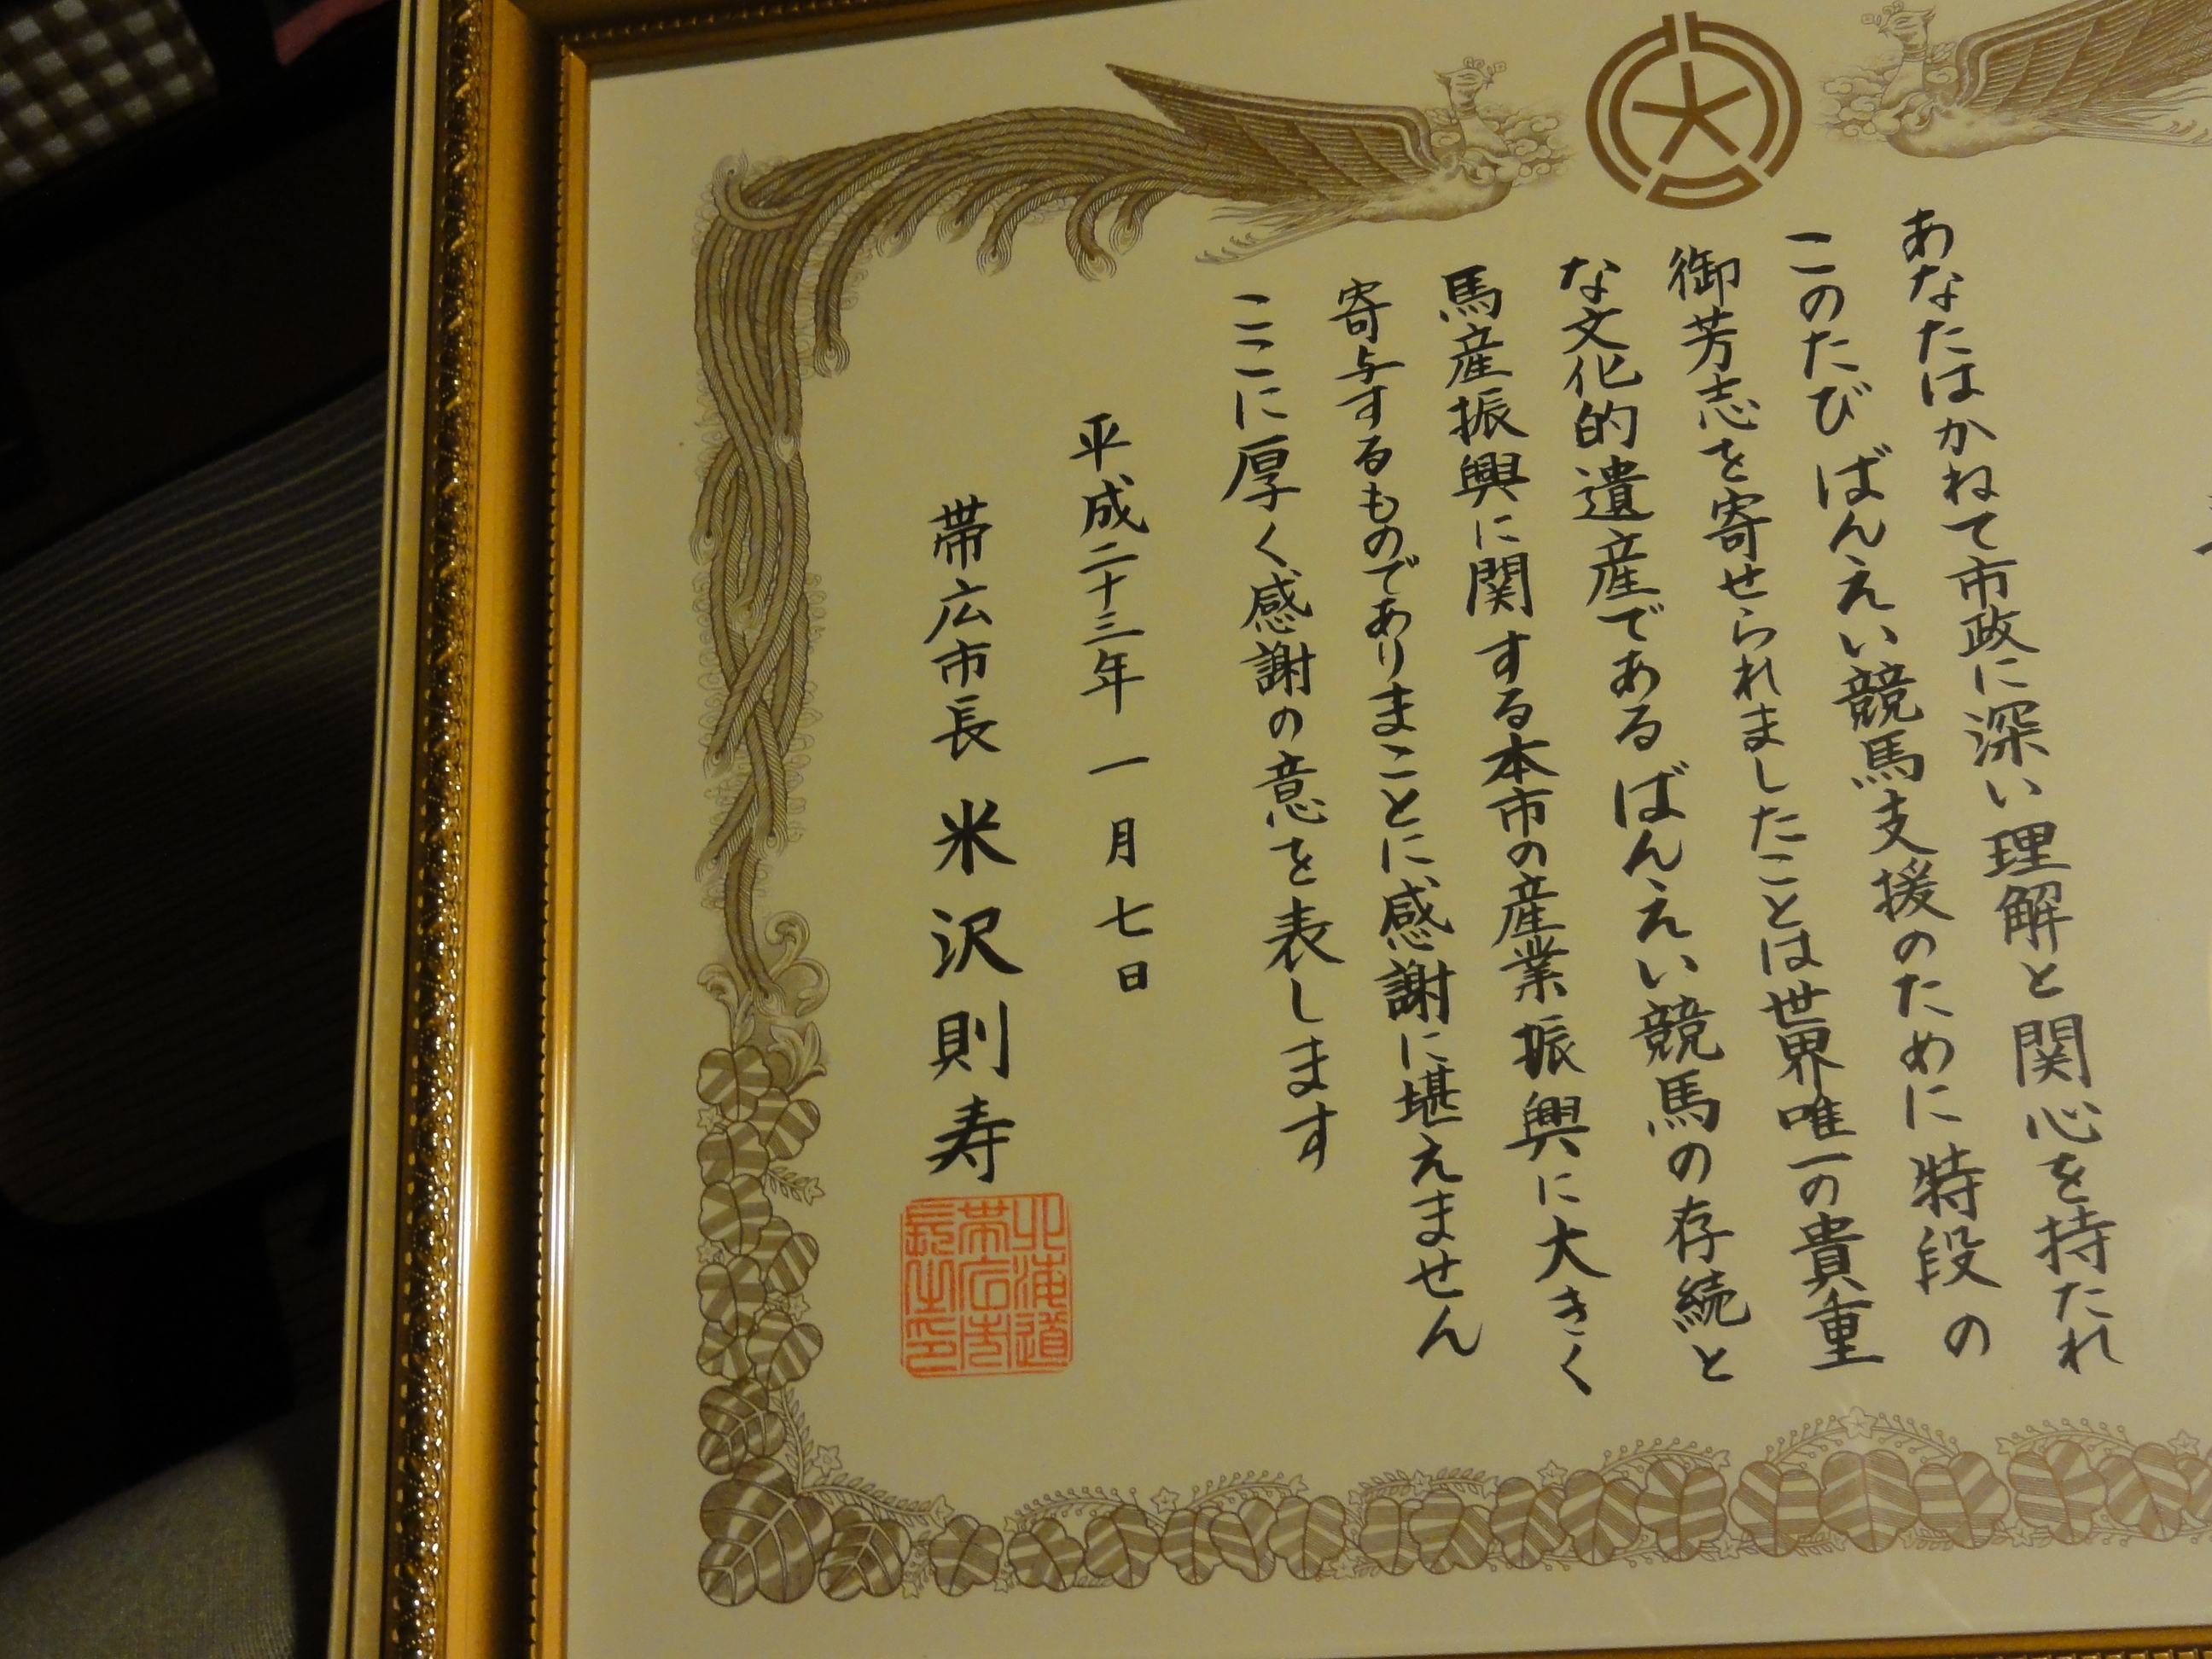 あなたはかねて市政に深い理解と関心を持たれ
このたびばんえい競馬支援のために特段の
御芳志を寄せられましたことは世界唯一の貴重
な文化的遺産であるばんえい競馬の存続と
馬産振興に関する本市の産業振興に大きく
寄与するものでありまことに感謝に堪えません
ここに厚く感謝の意を表します
平成二十三年一月七日
帯広市長 米沢則寿
北海道
帯広市
長之印